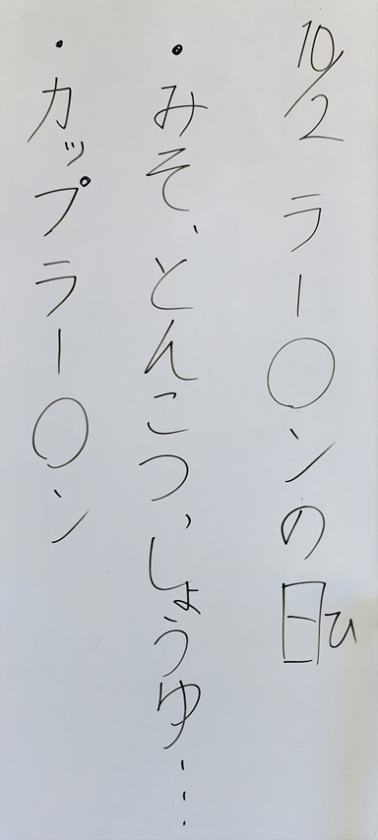 10/2 ラー〇ンの日ひ
・みそ、とんこつ、しょうゆ…
・カップラー〇ン